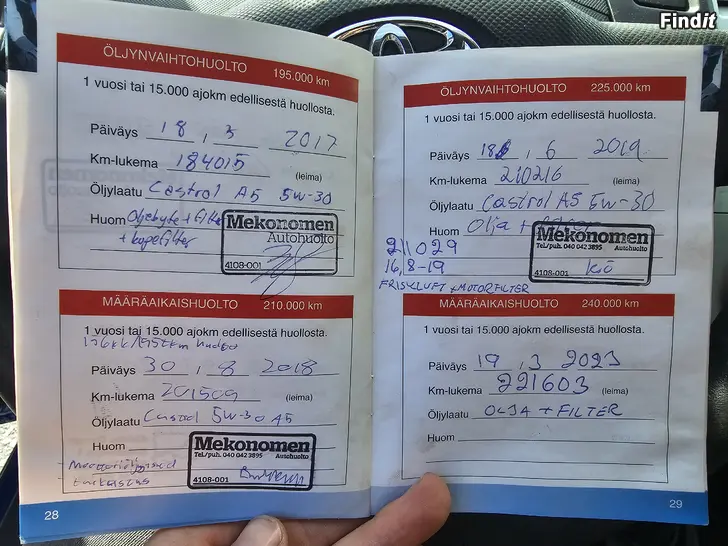 Findit
ÖLJYNVAIHTOHUOLTO 195.000 km
1 vuosi tai 15.000 ajokm edellisestä huollosta.
Päiväys 18 , 3 2017
Km-lukema 184015 (leima)
Öljylaatu Castrol A5 5w-30
Huom Oljebyte + filter
+ kupefilter
Mekonomen
Autohuolto
4108-001
MÄÄRÄAIKAISHUOLTO 210.000 km
1 vuosi tai 15.000 ajokm edellisestä huollosta.
Päiväys 30 , 8 2018
Km-lukema 201509 (leima)
Öljylaatu Castrol 5w-30 A5
Huom
tarkastus
Mekonomen
Tel./puh. 040 042 3895 Autohuolto
4108-001
28
ÖLJYNVAIHTOHUOLTO 225.000 km
1 vuosi tai 15.000 ajokm edellisestä huollosta.
Päiväys 18 , 6 2019
Km-lukema 210216 (leima)
Öljylaatu Castrol A5 5w-30
Huom Olja +
Mekonomen
Tel./puh. 040 042 3895 Autohuolto
4108-001
211029
16,8-19
FRISKLUFT + MOTORFILTER
MÄÄRÄAIKAISHUOLTO 240.000 km
1 vuosi tai 15.000 ajokm edellisestä huollosta.
Päiväys 19 , 3 2023
Km-lukema 221603 (leima)
Öljylaatu OLJA + FILTER
Huom
29